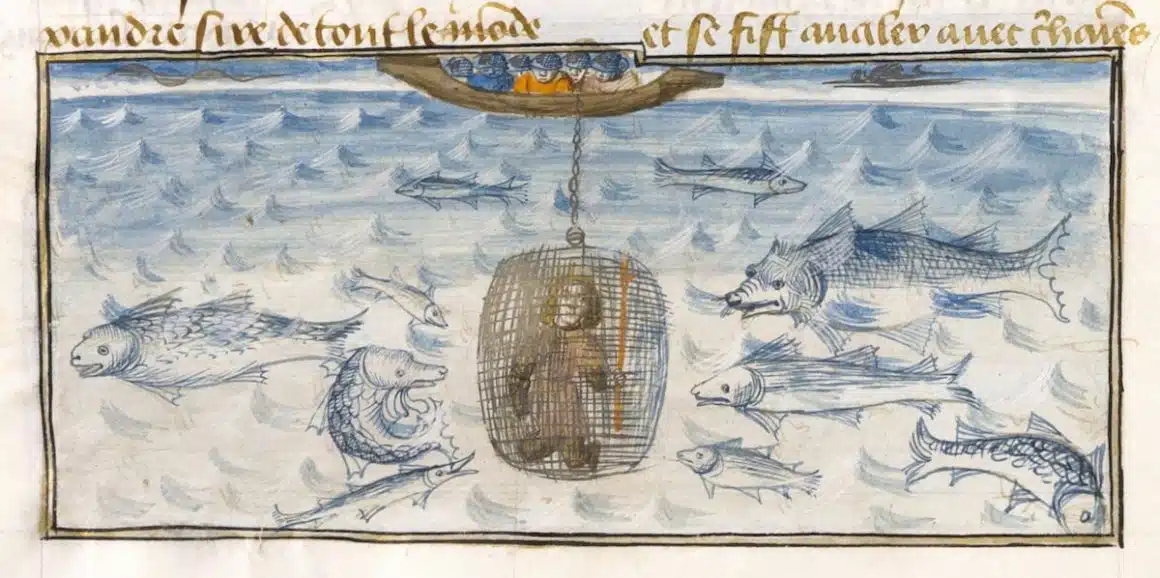 xandre sire de tout le mōde et se fist aualer auec chaiēs